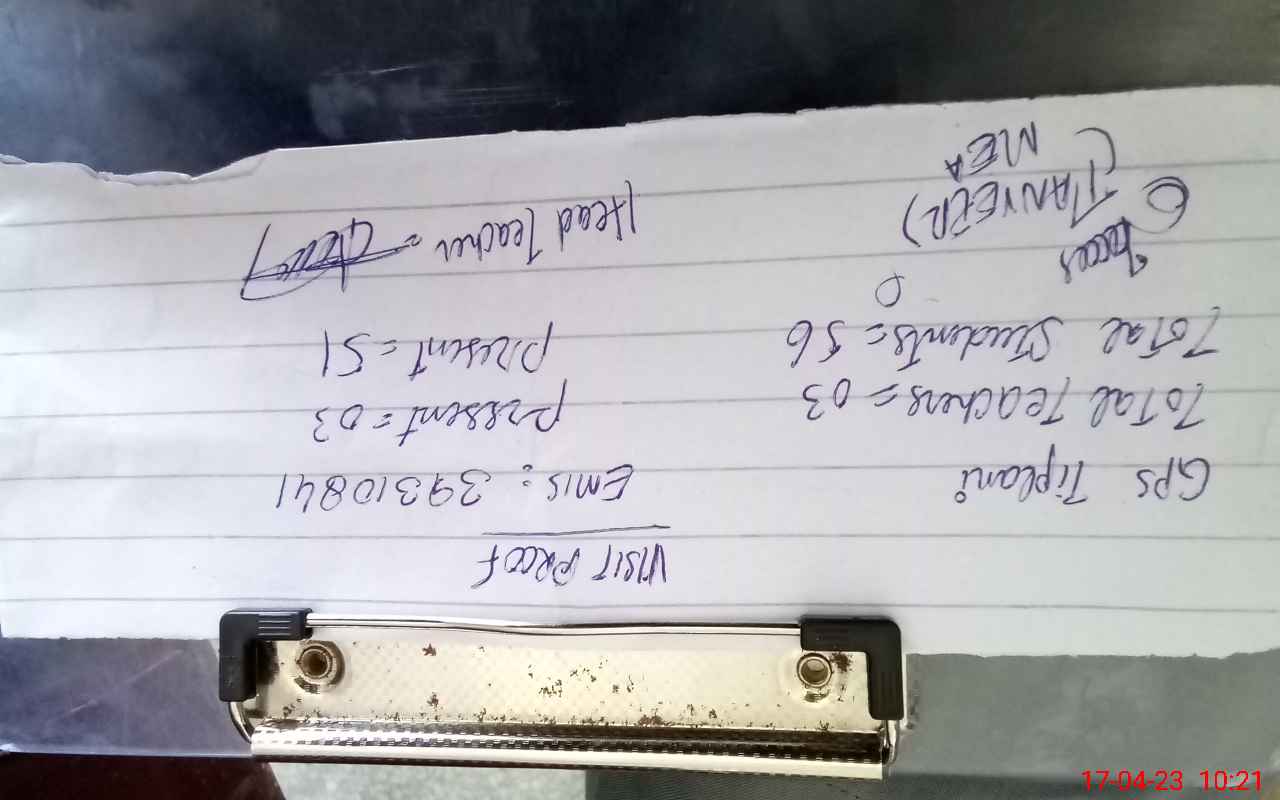 VISIT PROOF
GPS Tiplani EMIS: 39310841
Total Teachers = 03 Present = 03
Total Students = 56 Present = 51
Head Teacher =
(TANVEER)
MEA
17-04-23 10:21